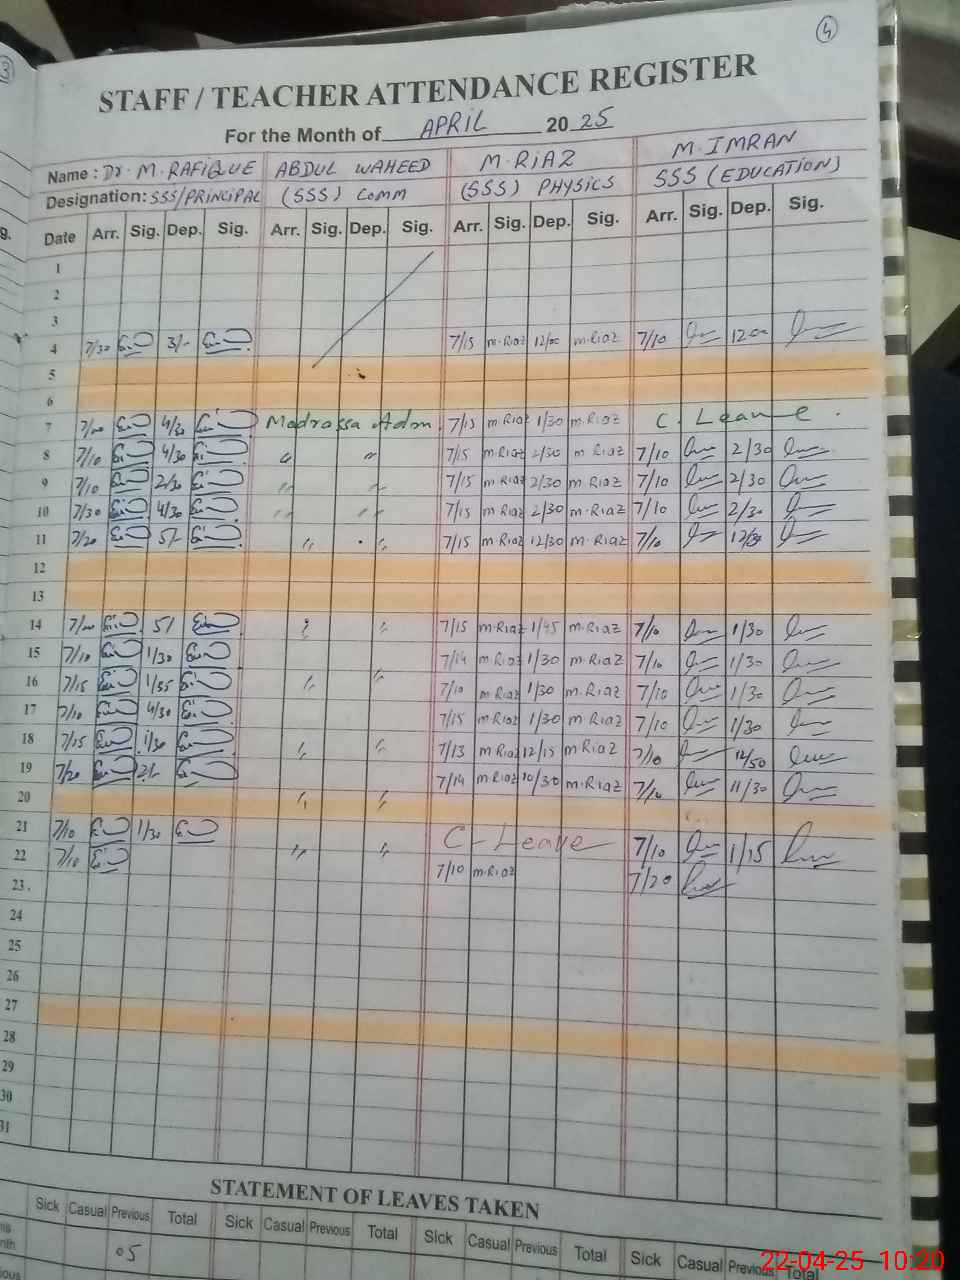 4
3
STAFF / TEACHER ATTENDANCE REGISTER
For the Month of APRIL 20 25
Name : Dr. M. RAFIQUE ABDUL WAHEED M. RiAZ M. IMRAN
Designation: SSS/PRINCIPAL (SSS) Comm (SSS) PHYSICS SSS (EDUCATION)
g. Date Arr. Sig. Dep. Sig. Arr. Sig. Dep. Sig. Arr. Sig. Dep. Sig. Arr. Sig. Dep. Sig.
1
2
3
4 7/30 3/- 7/15 m.Riaz 12/00 m.Riaz 7/10 1200
5
6
7 4/30 Madrassa Adm. 7/15 m.Riaz 1/30 m.Riaz C. Leave .
8 7/10 4/30 " " 7/15 m.Riaz 2/30 m Riaz 7/10 2/30
9 7/10 2/30 " " 7/15 m.Riaz 2/30 m.Riaz 7/10 2/30
10 7/30 4/30 " " 7/15 m.Riaz 2/30 m.Riaz 7/10 2/30
11 7/20 5/- " " 7/15 m.Riaz 12/30 m.Riaz 7/10
12
13
14 5/ " " 7/15 m.Riaz 1/45 m.Riaz 7/10 1/30
15 7/10 1/30 7/14 m.Riaz 1/30 m.Riaz 7/10 1/30
16 7/15 1/35 " " 7/10 m.Riaz 1/30 m.Riaz 7/10 1/30
17 7/10 4/30 7/15 m.Riaz 1/30 m.Riaz 7/10 1/30
18 7/15 1/30 " " 7/13 m.Riaz 12/15 m Riaz 7/10 12/50
19 7/20 7/14 m.Riaz 10/30 m.Riaz 7/10 11/30
20 " "
21 7/10 1/30 C-Leave 7/10 1/15
22 7/10 " " 7/10 m.Riaz 7/20
23
24
25
26
27
28
29
30
31
STATEMENT OF LEAVES TAKEN
Sick Casual Previous Total Sick Casual Previous Total Sick Casual Previous Total Sick Casual Previous Total
05
22-04-25 10:20